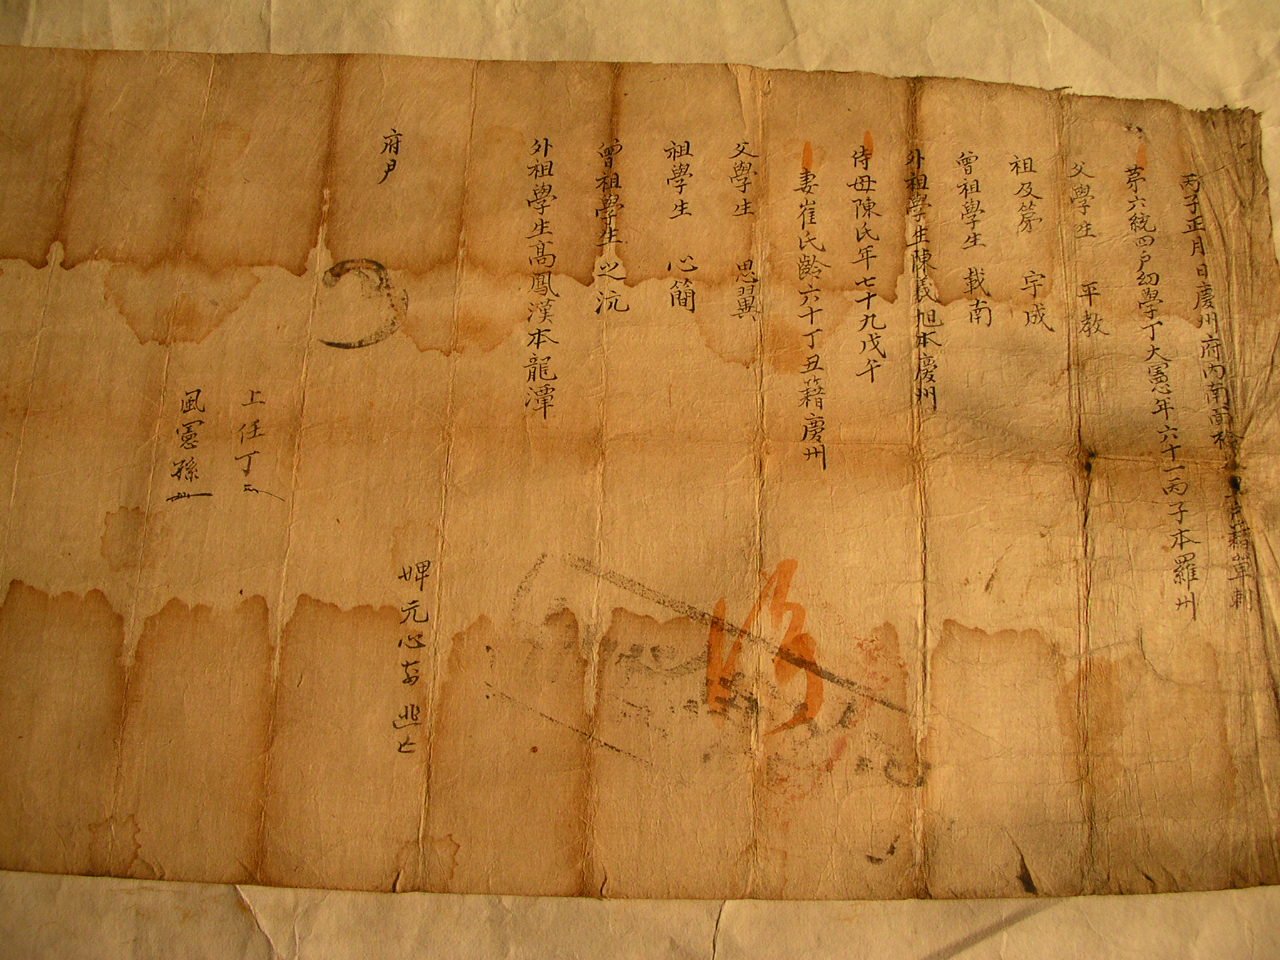 丙子正月 日慶州府內南面 戶籍單刺
第六統四戶幼學丁大憲年六十一丙子本羅州
父學生 平教
祖及第 宇成
曾祖學生 載南
外祖學生陳義旭本慶州
侍母陳氏年七十九戊午
妻崔氏齡六十丁丑籍慶州
父學生 思翼
祖學生 心簡
曾祖學生 之沆
外祖學生高鳳漢本龍潭
府尹
婢元心 逃亡
上任丁
風憲孫